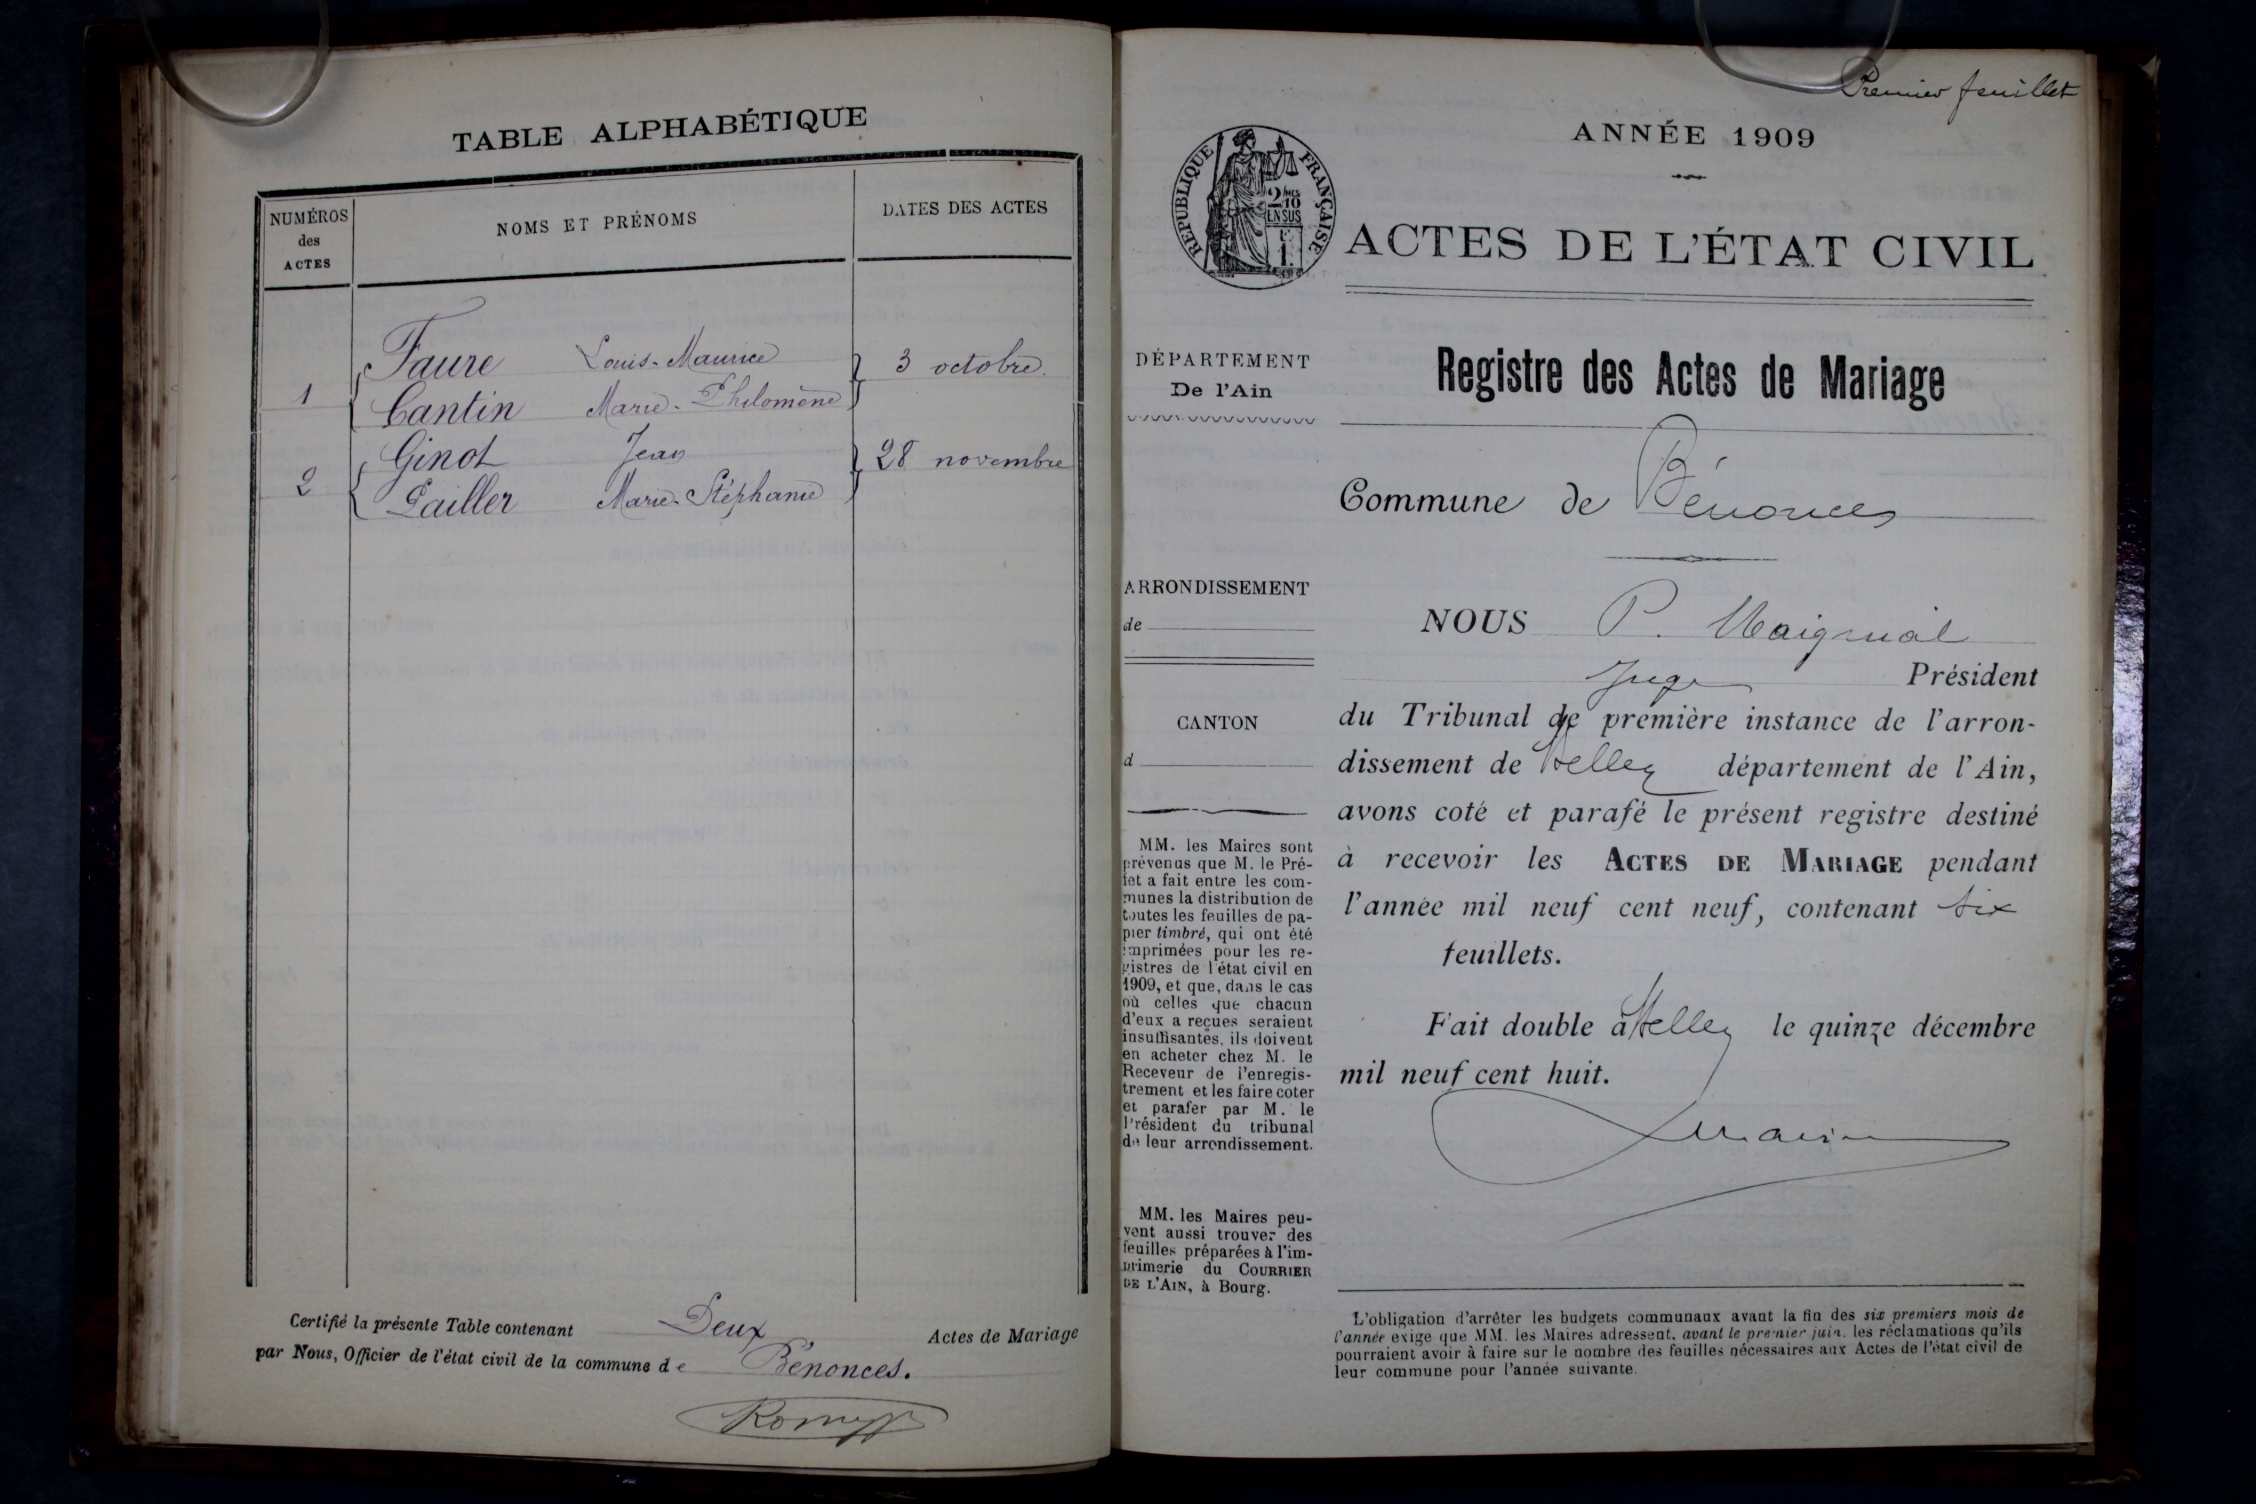 TABLE ALPHABÉTIQUE
NUMÉROS
des
ACTES
NOMS ET PRÉNOMS
DATES DES ACTES
1
Faure Louis-Maurice
3 octobre
Cantin Marie-Philomène
2
Ginot Jean
28 novembre
Pailler Marie-Stéphanie
Certifié la présente Table contenant Deux Actes de Mariage
par Nous, Officier de l'état civil de la commune de Bénonces.
Premier feuillet
ANNÉE 1909
RÉPUBLIQUE FRANÇAISE
2/10
EN SUS
ACTES DE L'ÉTAT CIVIL
DÉPARTEMENT
De l'Ain
Registre des Actes de Mariage
Commune de Bénonces
ARRONDISSEMENT
de
CANTON
d
MM. les Maires sont
prévenus que M. le Pré-
fet a fait entre les com-
munes la distribution de
toutes les feuilles de pa-
pier timbré, qui ont été
imprimées pour les re-
gistres de l'état civil en
1909, et que, dans le cas
où celles que chacun
d'eux a reçues seraient
insuffisantes, ils doivent
en acheter chez M. le
Receveur de l'enregis-
trement et les faire coter
et parafer par M. le
Président du tribunal
de leur arrondissement.
MM. les Maires peu-
vent aussi trouver des
feuilles préparées à l'im-
primerie du COURRIER
DE L'AIN, à Bourg.
NOUS P.
Juge Président
du Tribunal de première instance de l'arron-
dissement de Belley département de l'Ain,
avons coté et parafé le présent registre destiné
à recevoir les ACTES DE MARIAGE pendant
l'année mil neuf cent neuf, contenant six
feuillets.
Fait double à Belley le quinze décembre
mil neuf cent huit.
L'obligation d'arrêter les budgets communaux avant la fin des six premiers mois de
l'année exige que MM. les Maires adressent, avant le premier juin, les réclamations qu'ils
pourraient avoir à faire sur le nombre des feuilles nécessaires aux Actes de l'état civil de
leur commune pour l'année suivante.